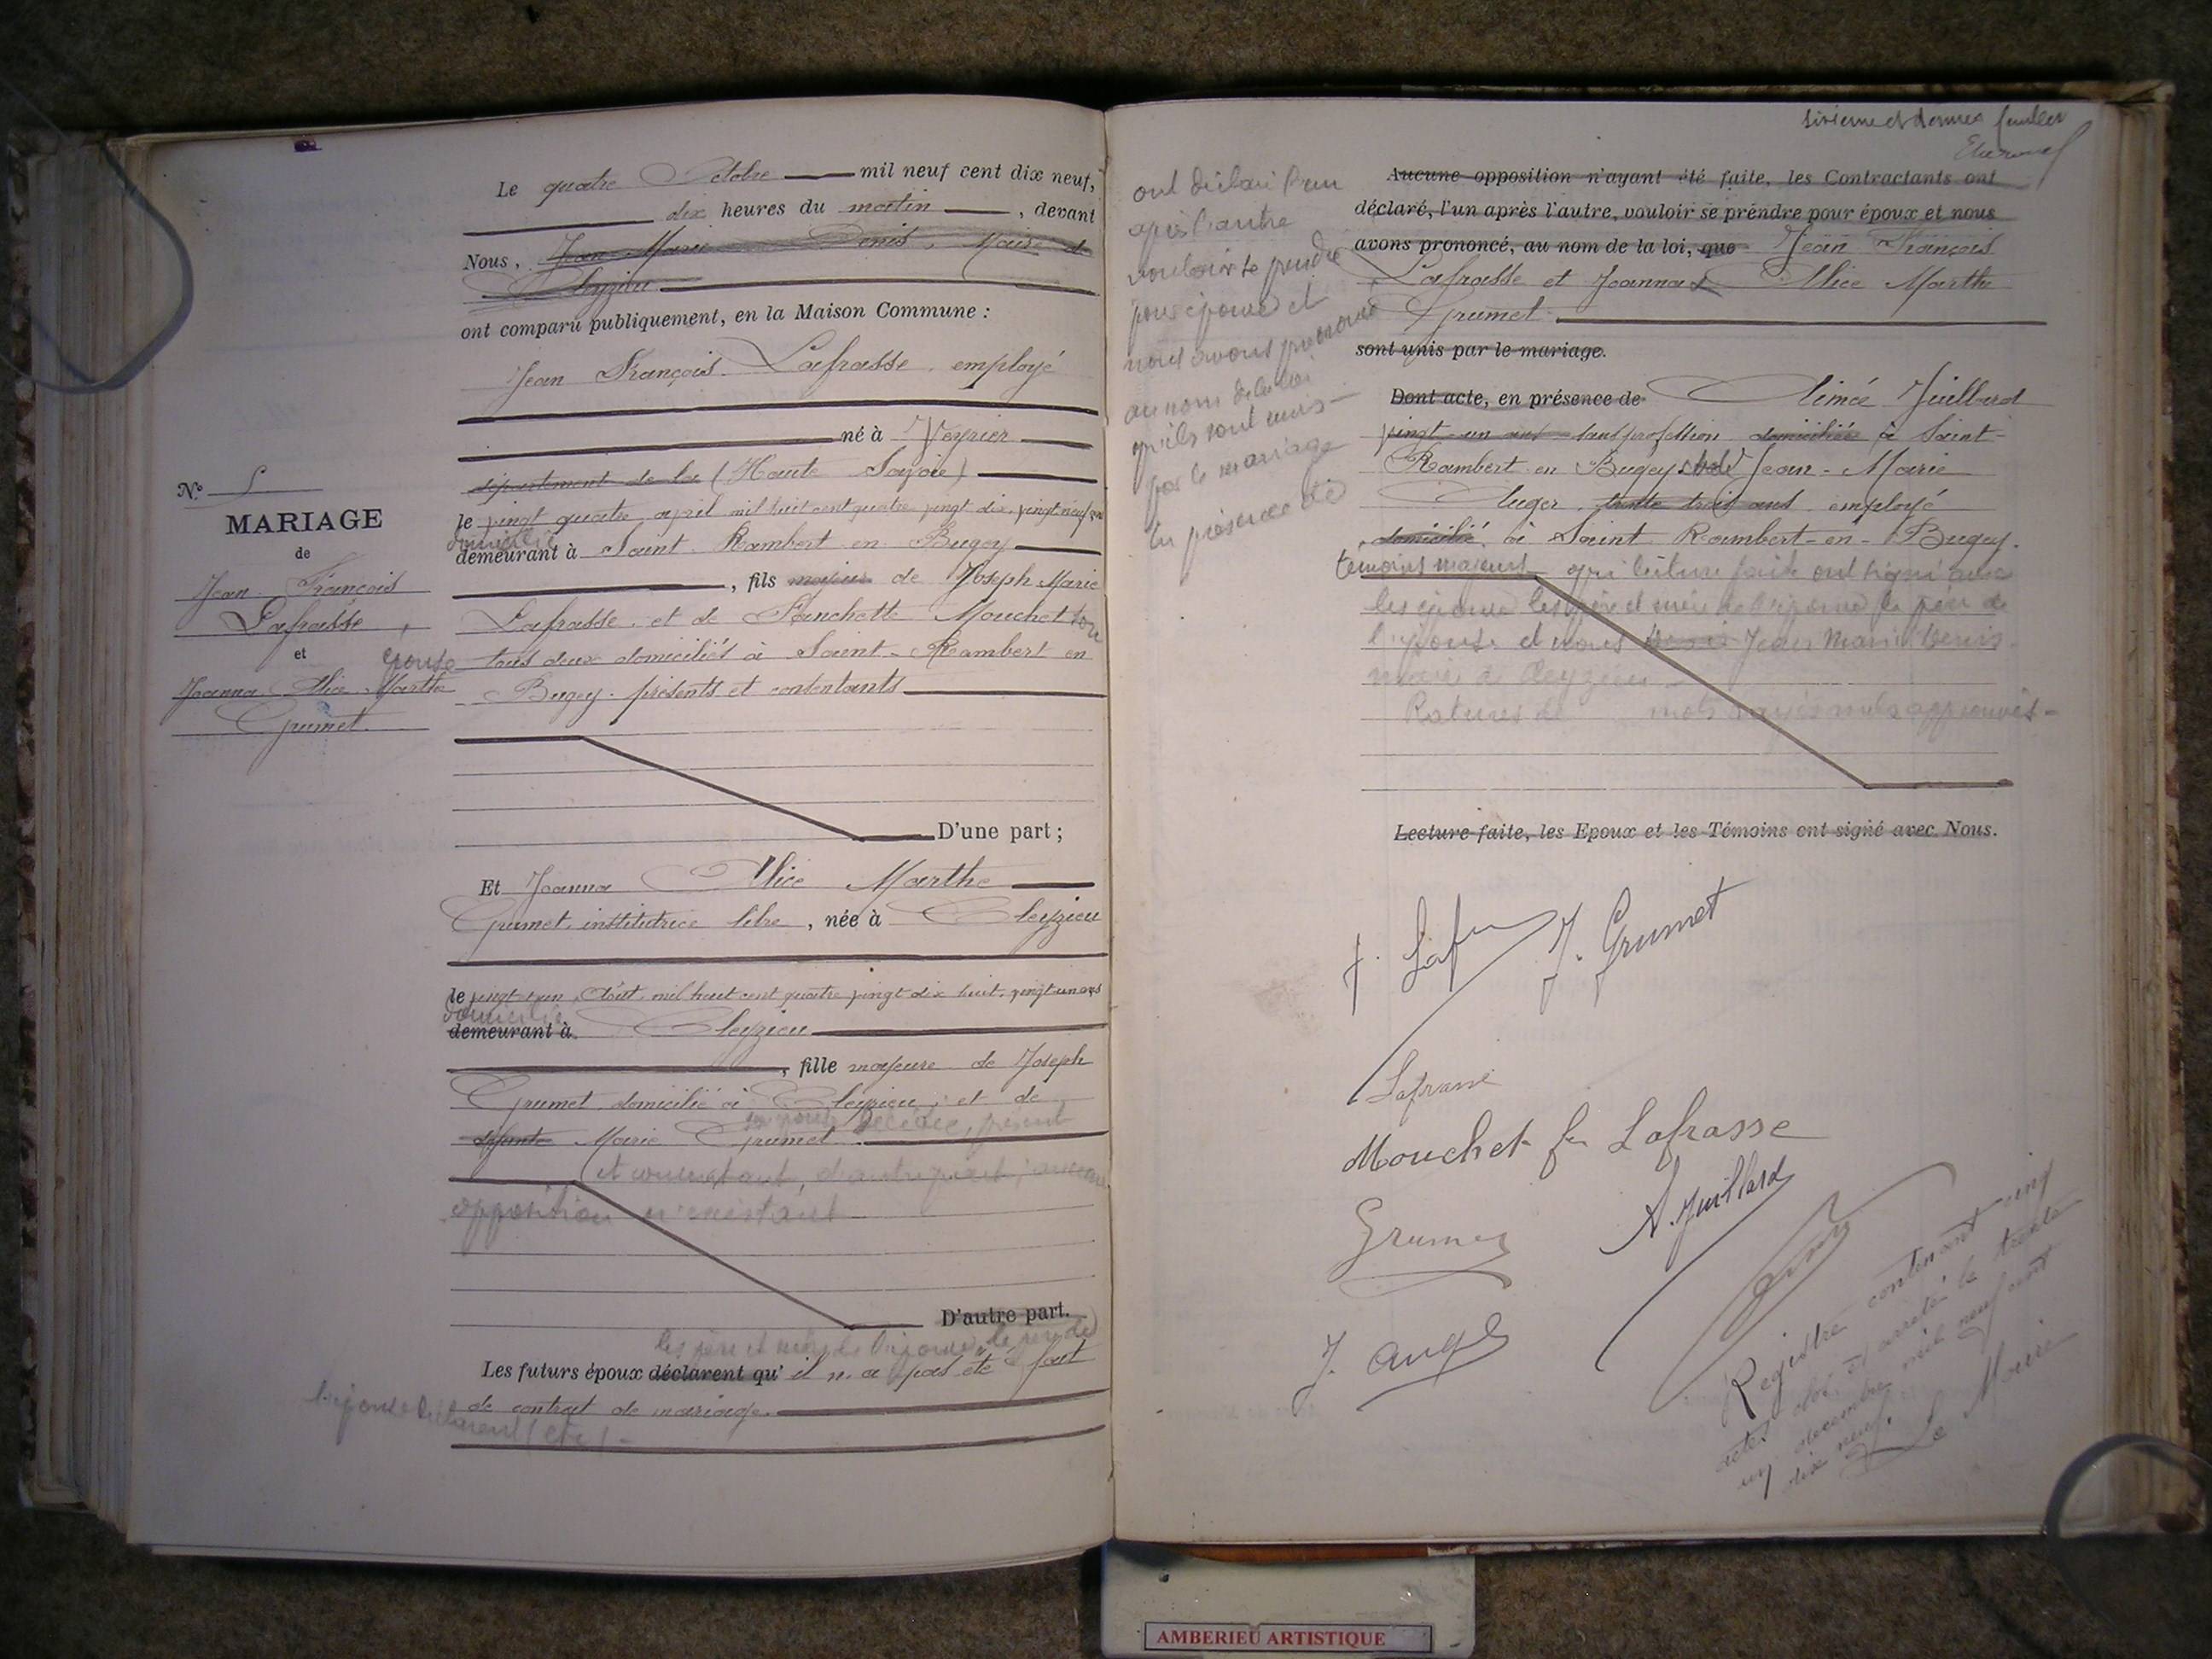 N° 5
MARIAGE
de
Jean François
Lafrasse,
et
Joanna Alice Marthe
Grumet.
Le quatre Octobre mil neuf cent dix neuf,
dix heures du matin, devant
Nous, Jean-Marie Denis, Maire de
Cleyzieu
ont comparu publiquement, en la Maison Commune :
Jean François Lafrasse, employé
né à Veyrier
département de la (Haute Savoie)
le vingt quatre avril mil huit cent quatre vingt dix, vingt neuf ans
domicilié
demeurant à Saint Rambert en Bugey
, fils majeur de Joseph Marie
Lafrasse, et de Fanchette Mouchet son
épouse tous deux domiciliés à Saint-Rambert en
Bugey. présents et contentants
D'une part ;
Et Joanna Alice Marthe
Grumet, institutrice libre, née à Cleyzieu
le vingt un Août mil huit cent quatre vingt dix huit, vingt un ans
domiciliée
demeurant à Cleyzieu
, fille majeure de Joseph
Grumet domicilié à Cleyzieu, et de
défunte Marie Grumet
son épouse décédée, présent
et consentant, d'autre part, aucune
opposition n'existant
D'autre part.
les père et mère de l'époux, le père de
Les futurs époux déclarent qu' il n'a pas été fait
l'épouse déclarent
de contrat de mariage.
ont déclaré l'un
après l'autre
vouloir se prendre
pour époux et
nous avons prononcé
au nom de la loi
qu'ils sont unis
par le mariage
En présence de
sixième et dernier feuillet
Aucune opposition n'ayant été faite, les Contractants ont
déclaré, l'un après l'autre, vouloir se prendre pour époux et nous
avons prononcé, au nom de la loi, que Jean François
Lafrasse et Joanna Alice Marthe
Grumet
sont unis par le mariage.
Dont acte, en présence de Aimée Juillard
vingt-un ans sans profession domiciliée à Saint-
Rambert-en-Bugey et de Jean-Marie
Auger, trente trois ans, employé
domicilié à Saint Rambert-en-Bugey.
témoins majeurs qui lecture faite ont signé avec
les époux les père et mère de l'époux le père de
l'épouse et nous Jean Marie Denis
maire de Cleyzieu
Ratures de mots rayés nuls approuvés
Lecture faite, les Epoux et les Témoins ont signé avec Nous.
J. Grumet
Lafrasse
Mouchet fe Lafrasse
Grumet
A. Juillard
J. Auger
Denis
Registre contenant cinq
actes clos et arrêté le trente
un décembre mil neuf cent
dix neuf.
Le Maire
AMBERIEU ARTISTIQUE